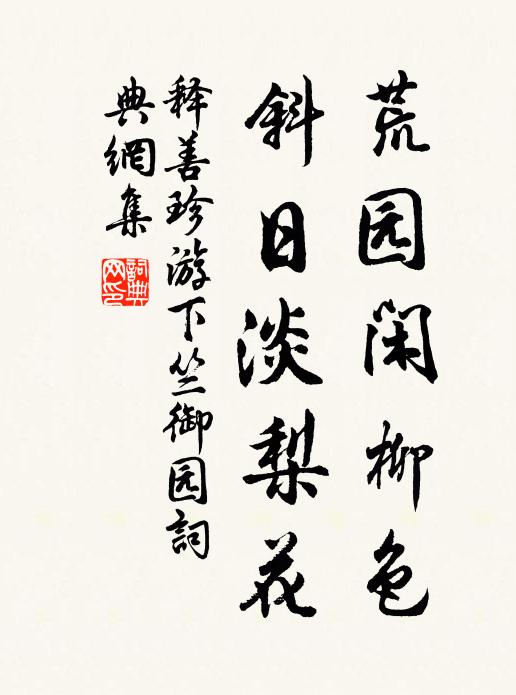 荒园闲柳色
斜日淡梨花
释善珍游下竺御园詞
典網集
詞典网印